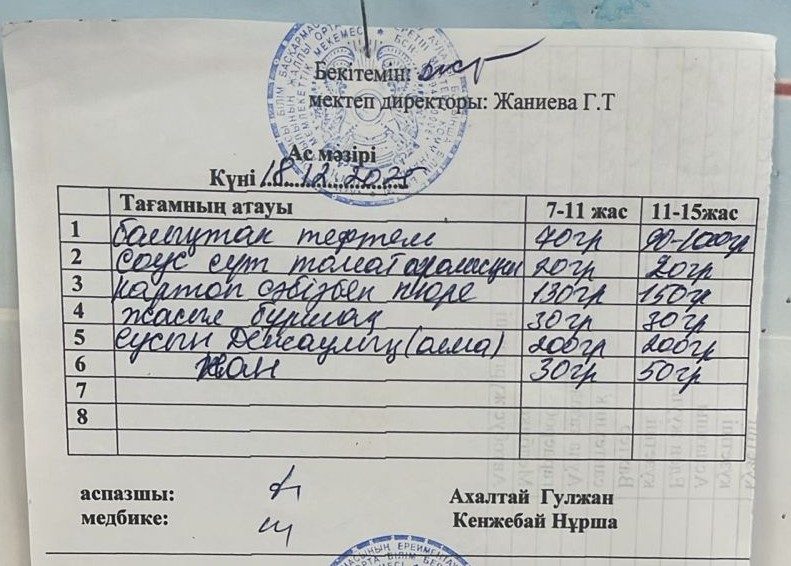 Бекітемін:
мектеп директоры: Жаниева Г.Т
Ас мәзірі
Күні 18.12.2025
Тағамның атауы 7-11 жас 11-15жас
1 тефтели 70гр 90-100гр
2 соус сүт томат 20гр 20гр
3 картоп сәбізбен пюре 130гр 150гр
4 жасыл бұршақ 30гр 30гр
5 сусын (алма) 200гр 200гр
6 нан 30гр 50гр
7
8
аспазшы: Ахалтай Гулжан
медбике: Кенжебай Нұрша